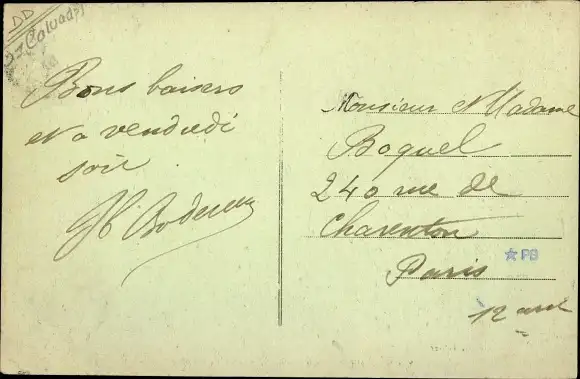 DD
(Calvados)
Bons baisers
et a vendredi
soir
Monsieur et Madame
Boquel
240 rue de
Charenton
☆ PB
Paris
12 arre